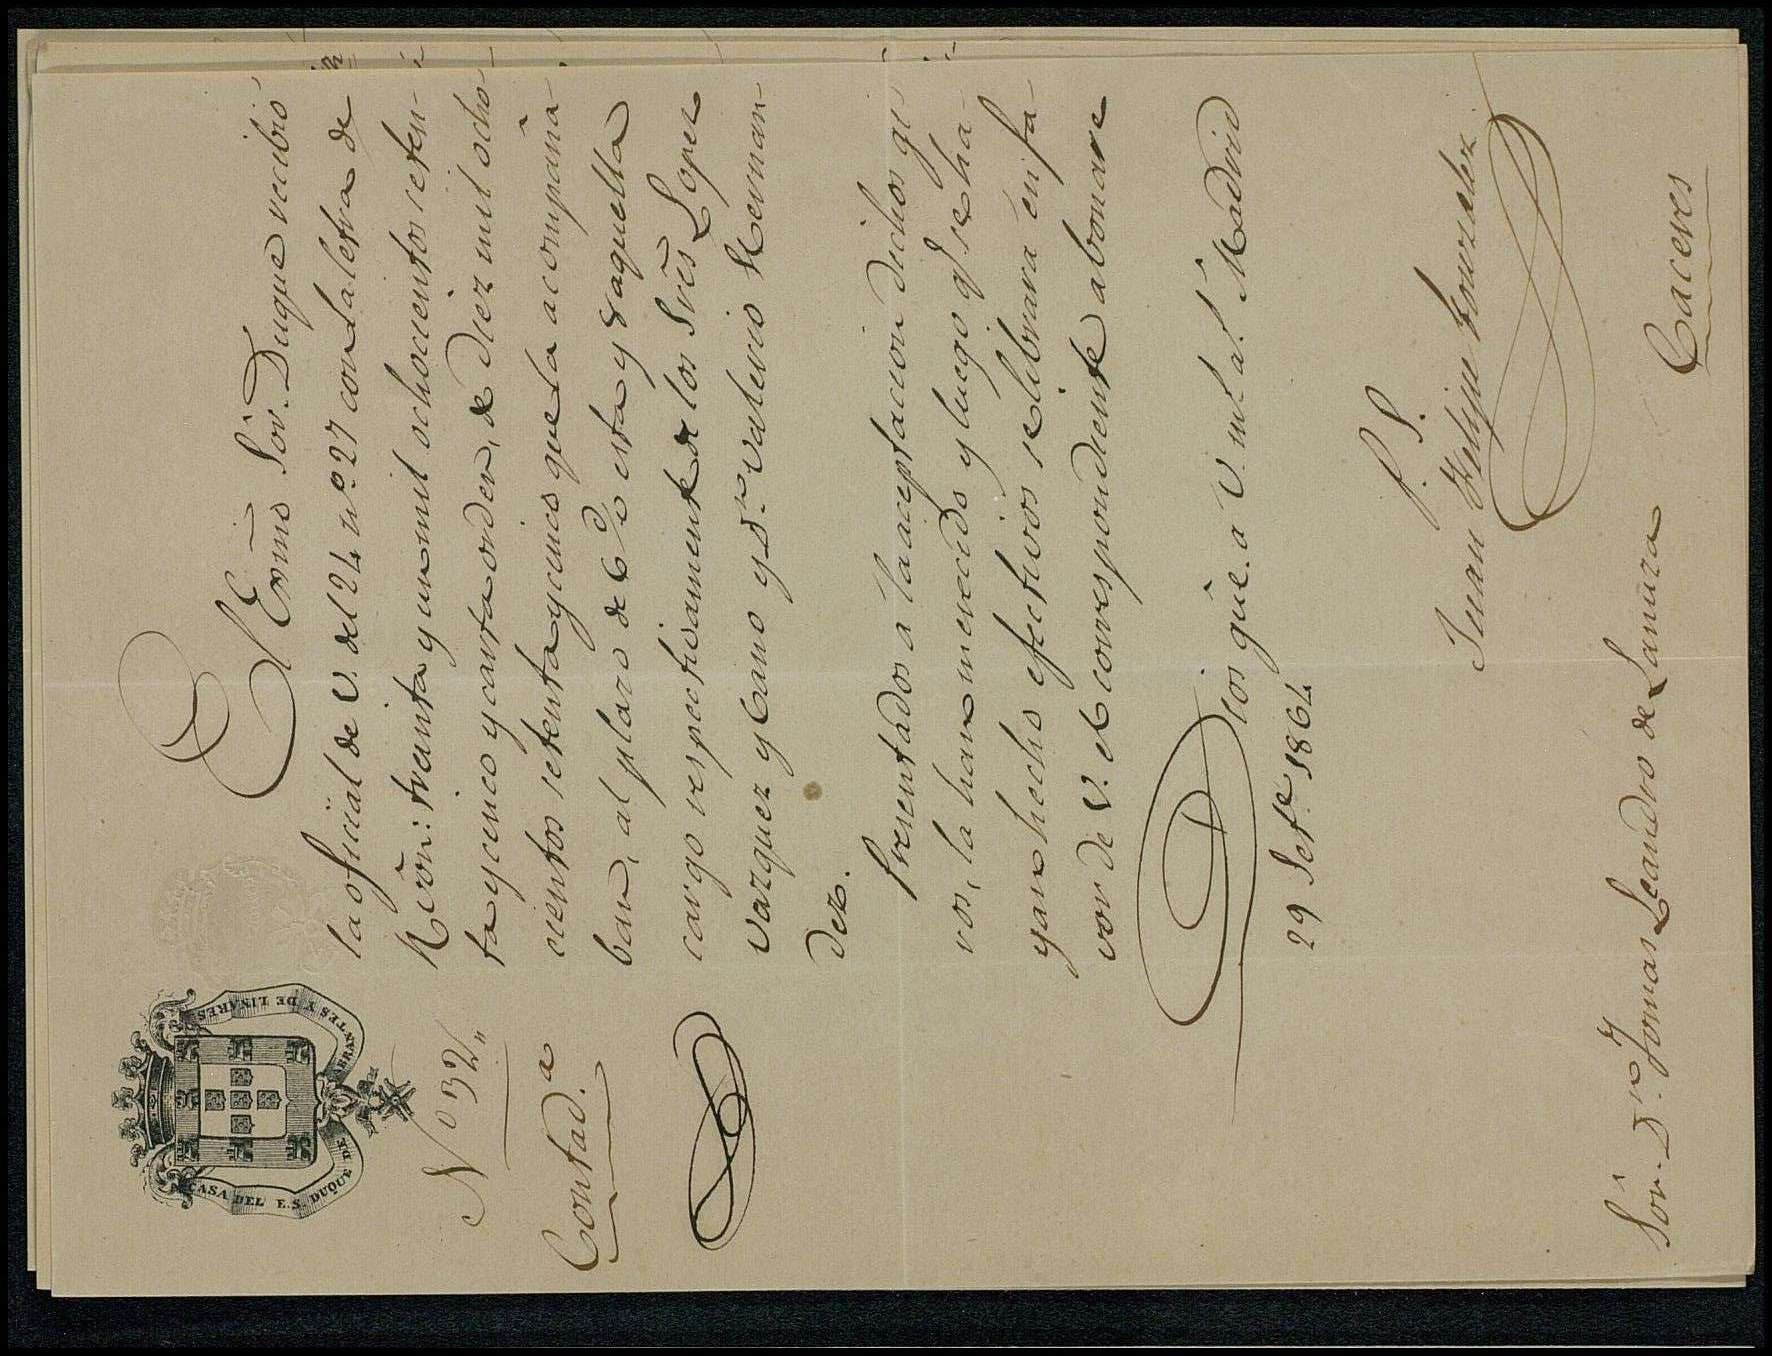 CASA DEL E.S. DUQUE DE ABRANTES Y DE LINARES
Nº 32,,
Contad.ª
El Exmo Sôr. Duque recibió
la oficial de V. del 24 nº 27 con la letra de
Rvôn: treinta y un mil ochocientos seten-
ta y cinco y carta orden, de diez mil ocho-
cientos setenta y cinco que la acompaña-
ban, al plazo de 6 d/v esta y aquella
cargo respectivamente de los Sres Lopez
Vazquez y Cano y Dn. Valerio Hernan-
dez.
Presentados a la aceptacion dichos gi-
ros, la han merecido y luego q.e se ha-
yan hecho efectivos se librará en fa-
vor de V. el correspondiente abonare
Dios güe. á V. m.s a.s Madrid
29 Set.e 1864
P. S.
Juan Felipe Gonzalez
Sôr. Dn. Tomas Leandro de Lamura
Caceres